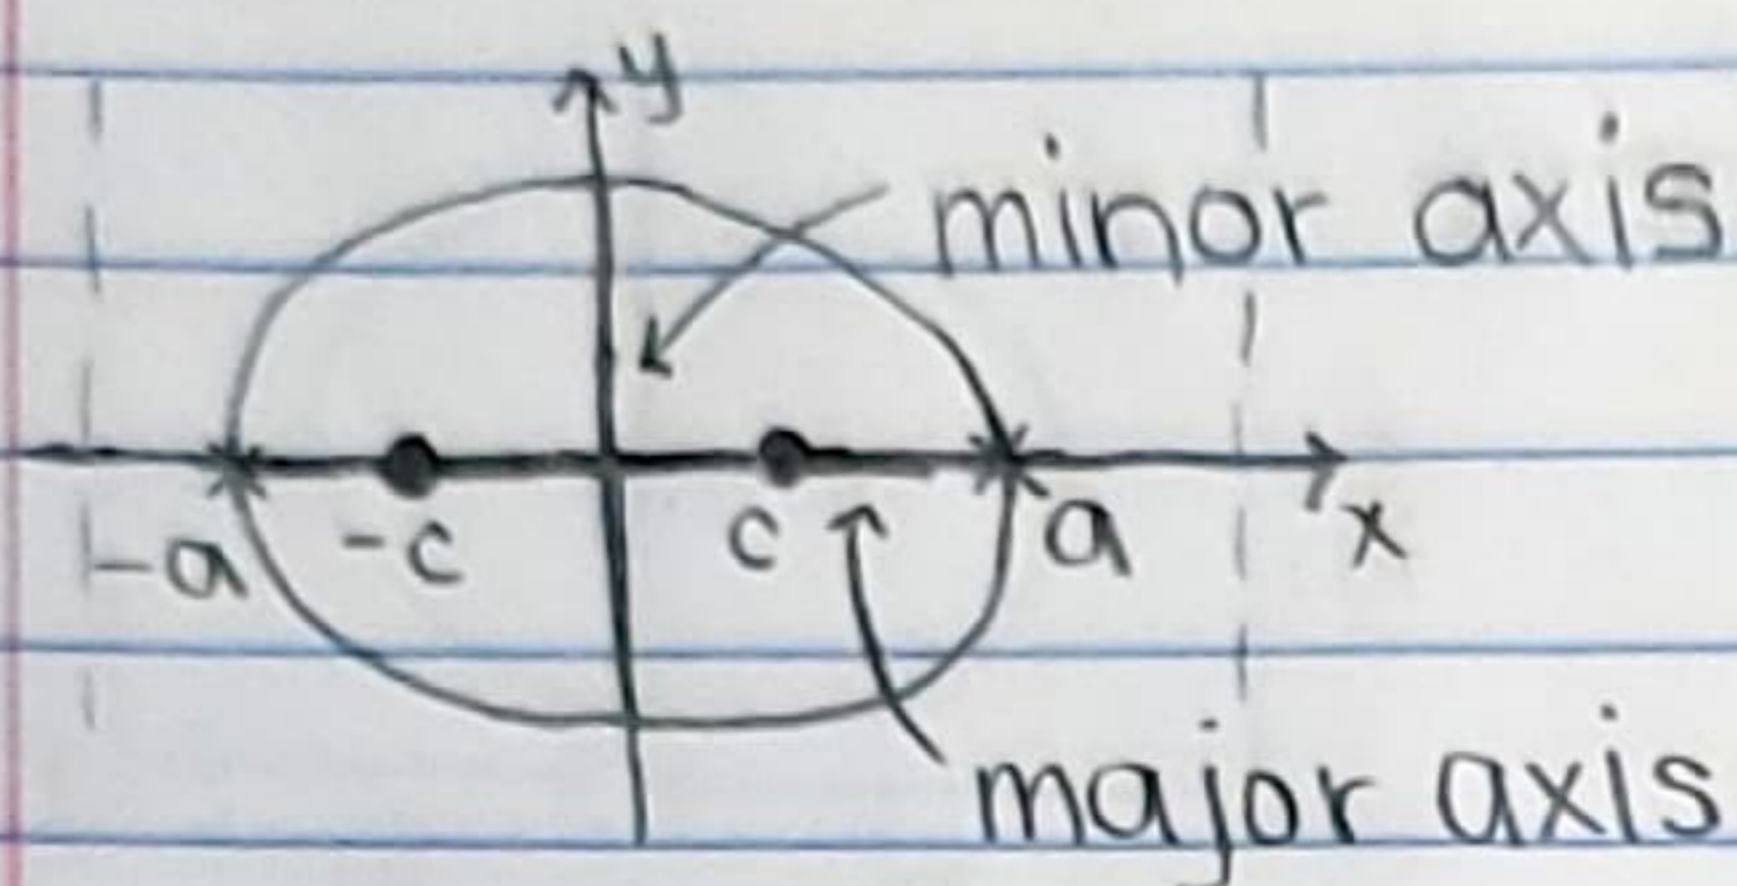 y
minor axis
-a -c c a x
major axis